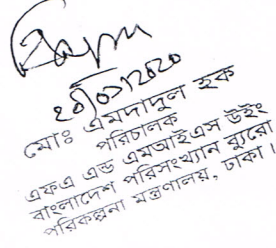 ২০/০১/২০২০
মোঃ এমদাদুল হক
পরিচালক
এফএ এন্ড এমআইএস উইং
বাংলাদেশ পরিসংখ্যান ব্যুরো
পরিকল্পনা মন্ত্রণালয়, ঢাকা।